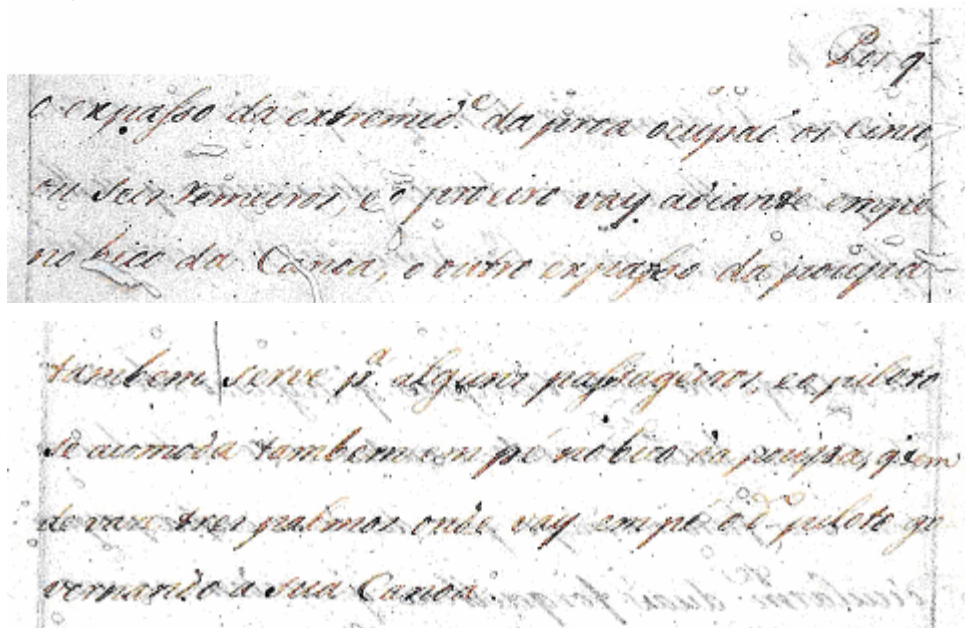 Porq̃
o expasso da extremid.e da proa ocupaé os cinco,
ou seis remeiros, e o proeiro vay adiante empé
no bico da Canoa, o outro expasso da poupa
tambem serve p.a alguns passageiros, eo piloto
se acomoda tambem em pé no bico da poupa, q̃ tem
de vara tres palmos onde vay em pé o d.o piloto go
vernando a sua Canoa.